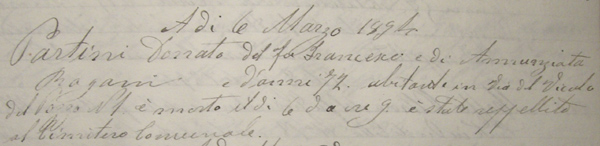 A di 6 Marzo 1894
Partini Donato del fu Francesco e di Annunziata
Pagani e d'anni 72. abitante in Via del Vicolo
del N è morto il di 6 da ore 9. è stato seppellito
al Cimitero Comunale.